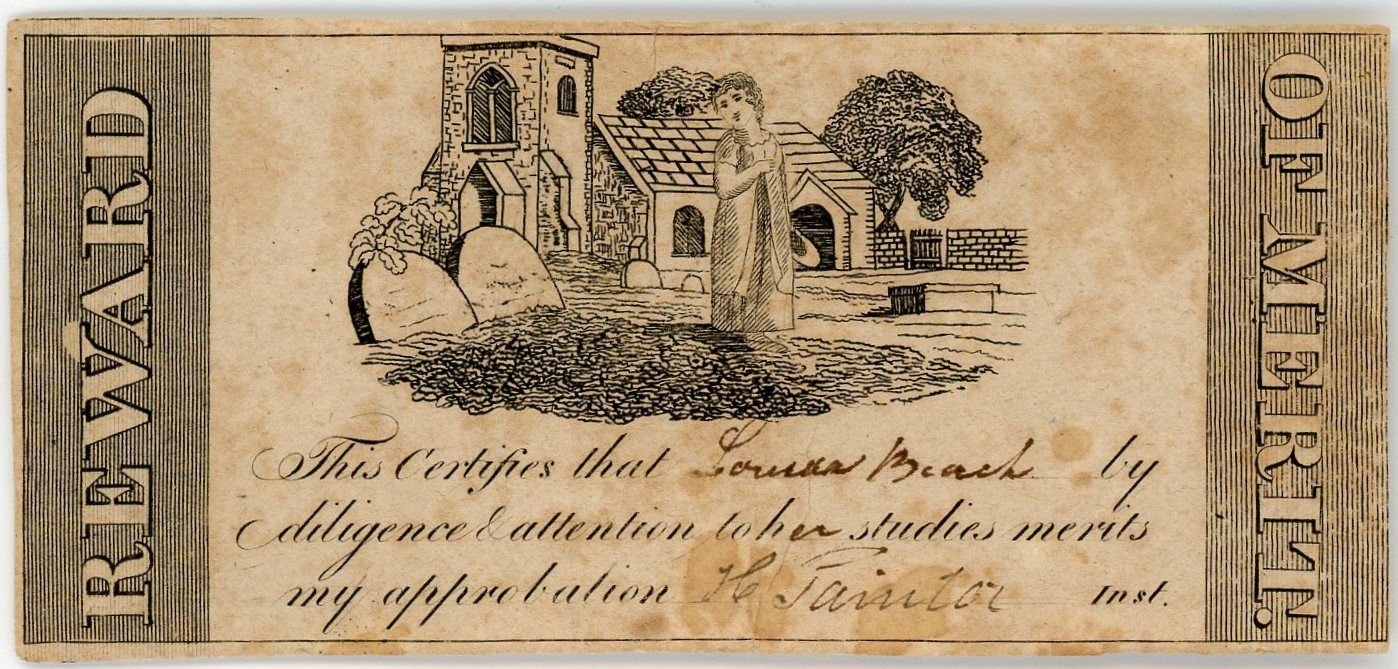 REWARD
OF MERIT.
This Certifies that Louisa Beach by
diligence & attention to her studies merits
my approbation H Taintor Inst.